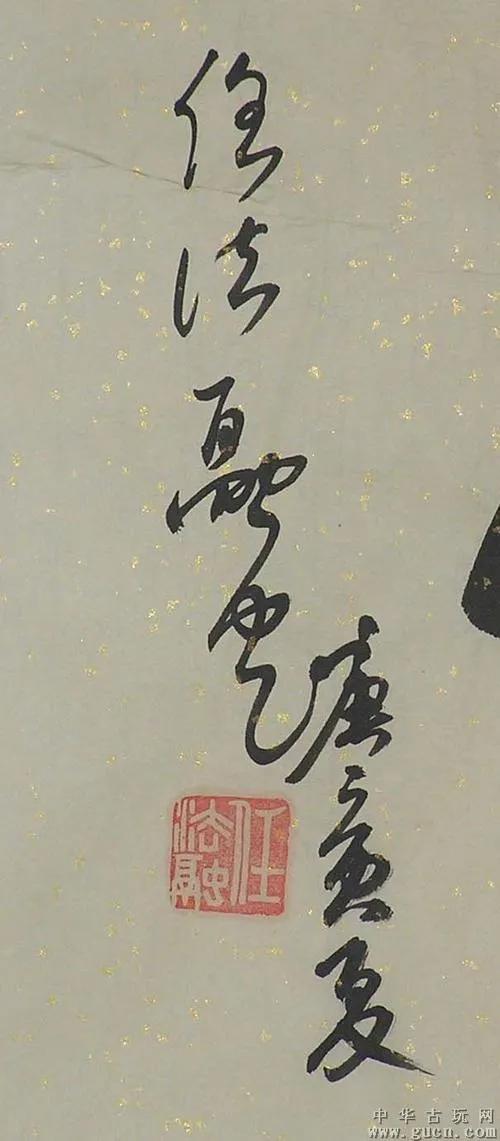 庚寅夏
任法融书
任法融
中华古玩网
www.gucn.com